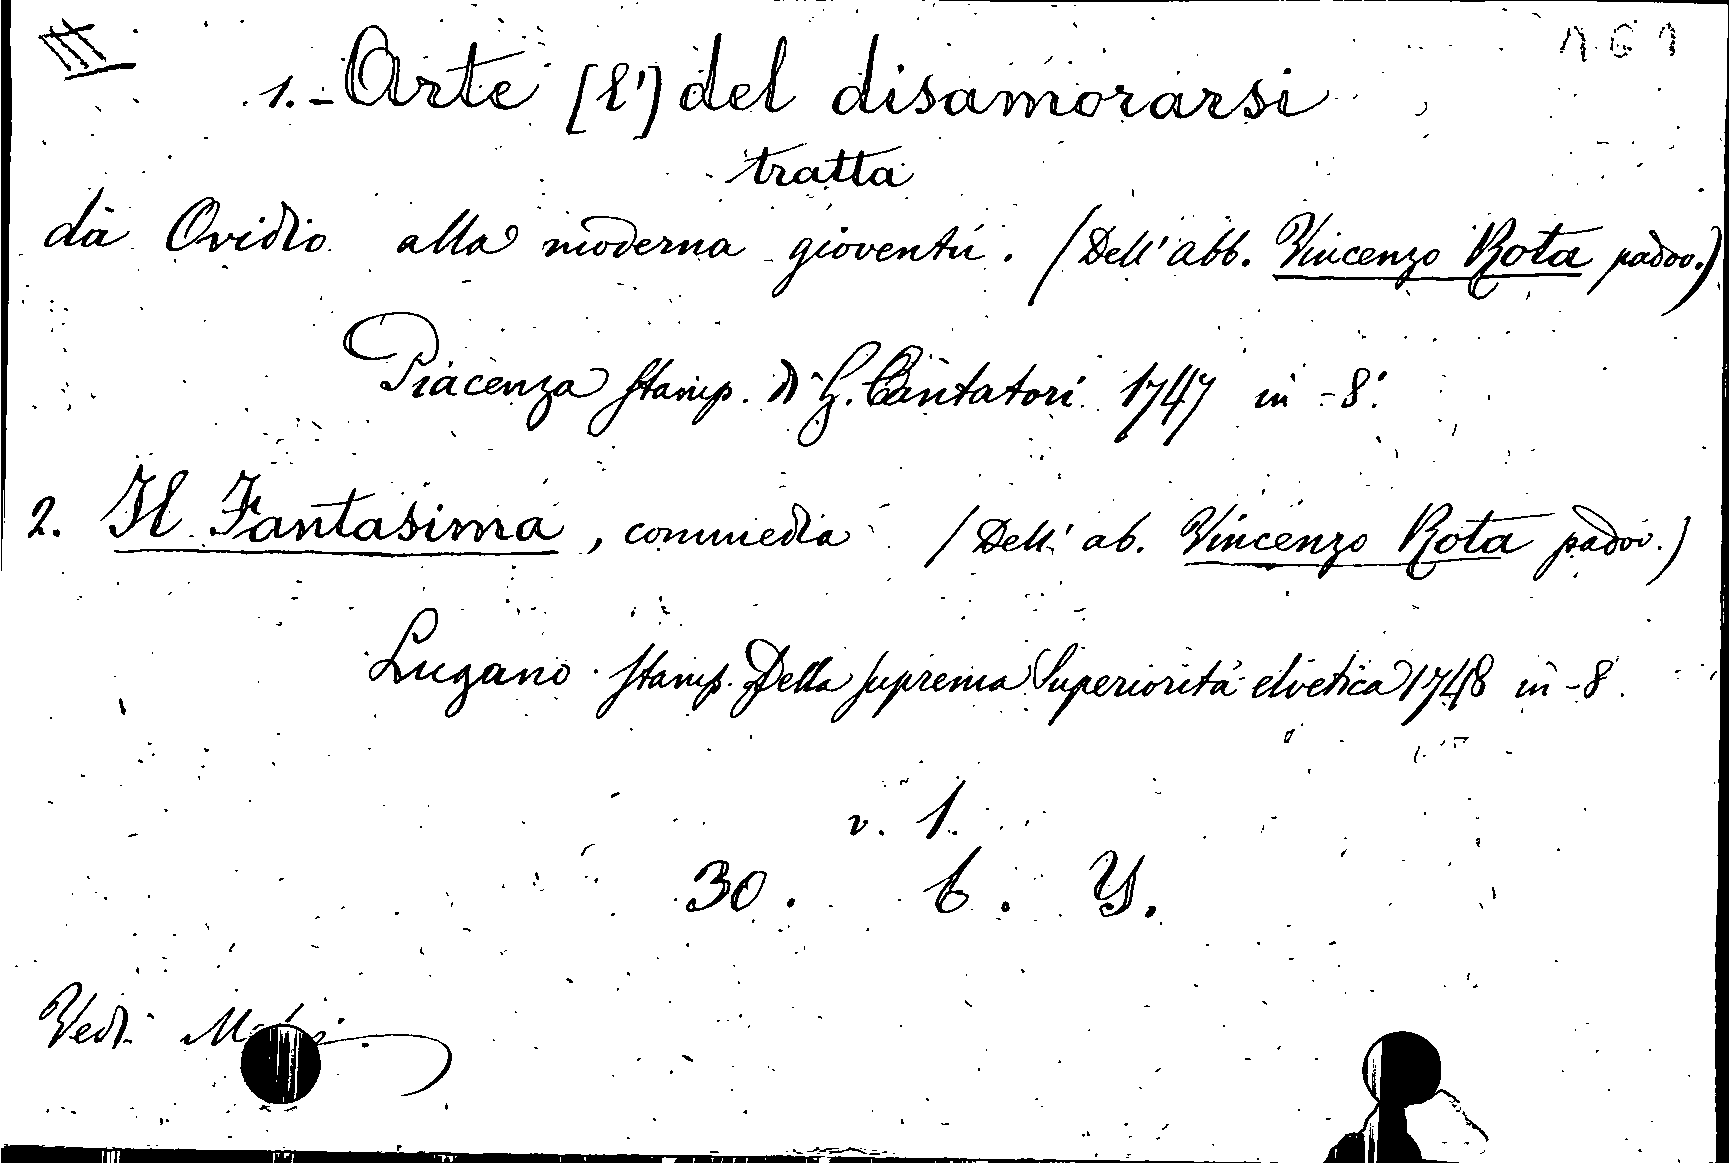 III
161
1. - Arte [l'] del disamorarsi
tratta
da Ovidio alla moderna gioventù. (Dell' abb. Vincenzo Rota padov.)
Piacenza stamp. di G. Cantatori 1747 in-8.
2. Il Fantasima, commedia (Dell' ab. Vincenzo Rota padov.)
Lugano stamp. Della suprema Superiorità elvetica 1748 in-8.
v. 1.
30. 6. Y.
Vedi